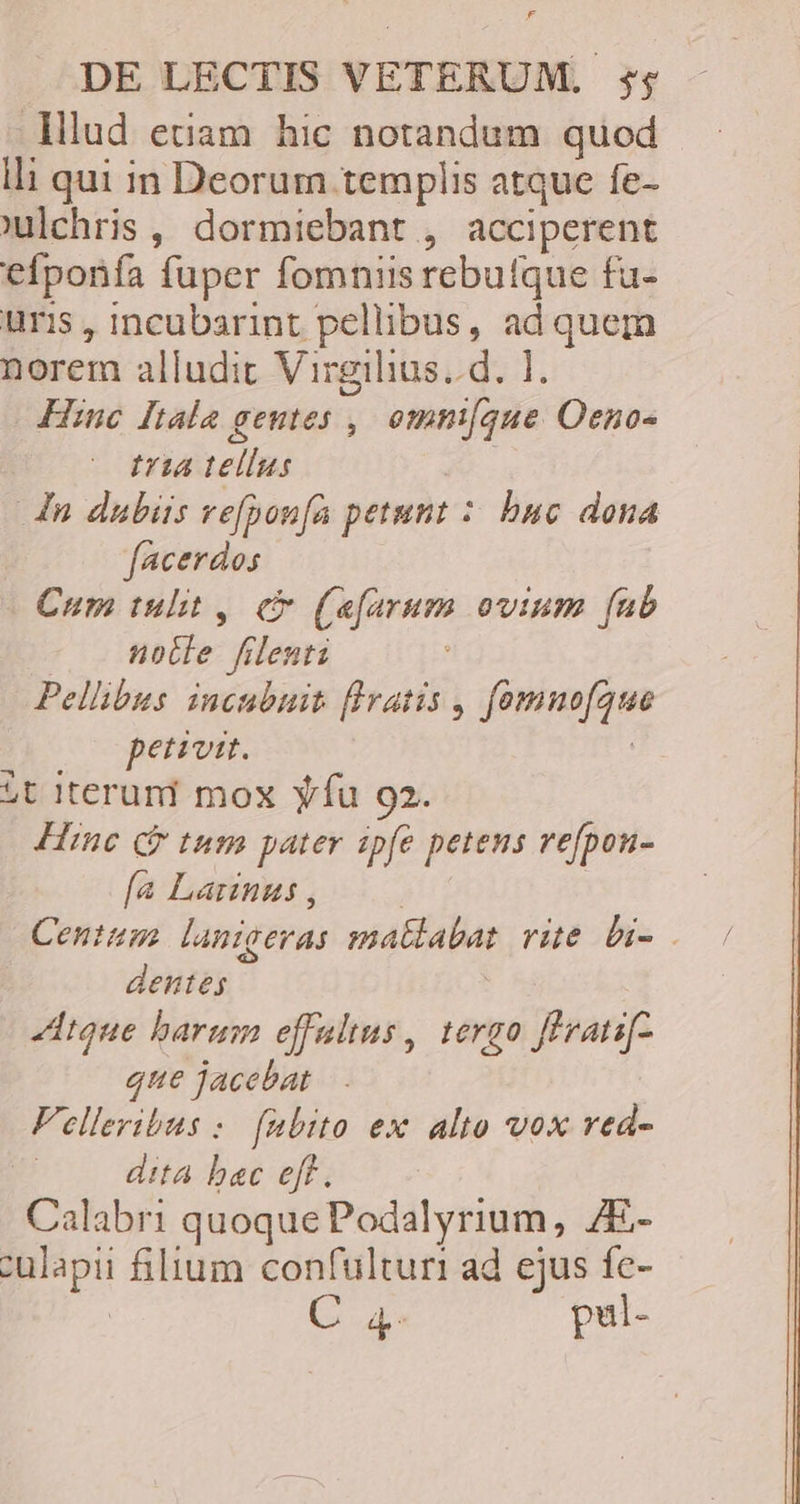 DE LECTIS VETERUM. 55
Illud etiam hic notandum quod
lli qui in Deorum templis atque ſe-
ulchris, dormiebant, acciperent
eſponſa ſuper ſomniis rebuſque ſu-
uris, incubarint pellibus, ad quem
norem alludit Virgilius. d. l.
Hinc Italæ gentes, omniſque Oeno-
tria tellus
In dubiis reſponſa petunt: huc dona
ſacerdos
Cum tulit, & cæſarum ovium ſub
nocte ſilenti
Pellibus incubuit ſtratis, ſomnoſque
petivit.
t iterum mox ỳſu 92.
Hinc & tum pater ipſe petens reſpon-
ſa Latinus,
Centum lanigeras mactabat rite bi-
dentes
Atque harum effultus, tergo ſtratiſ-
que jacebat
Velleribus: ſubito ex alto vox red-
dita hæc eſt.
Calabri quoque Podalyrium, Æ-
culapii filium conſulturi ad ejus ſe-
C 4 pul-